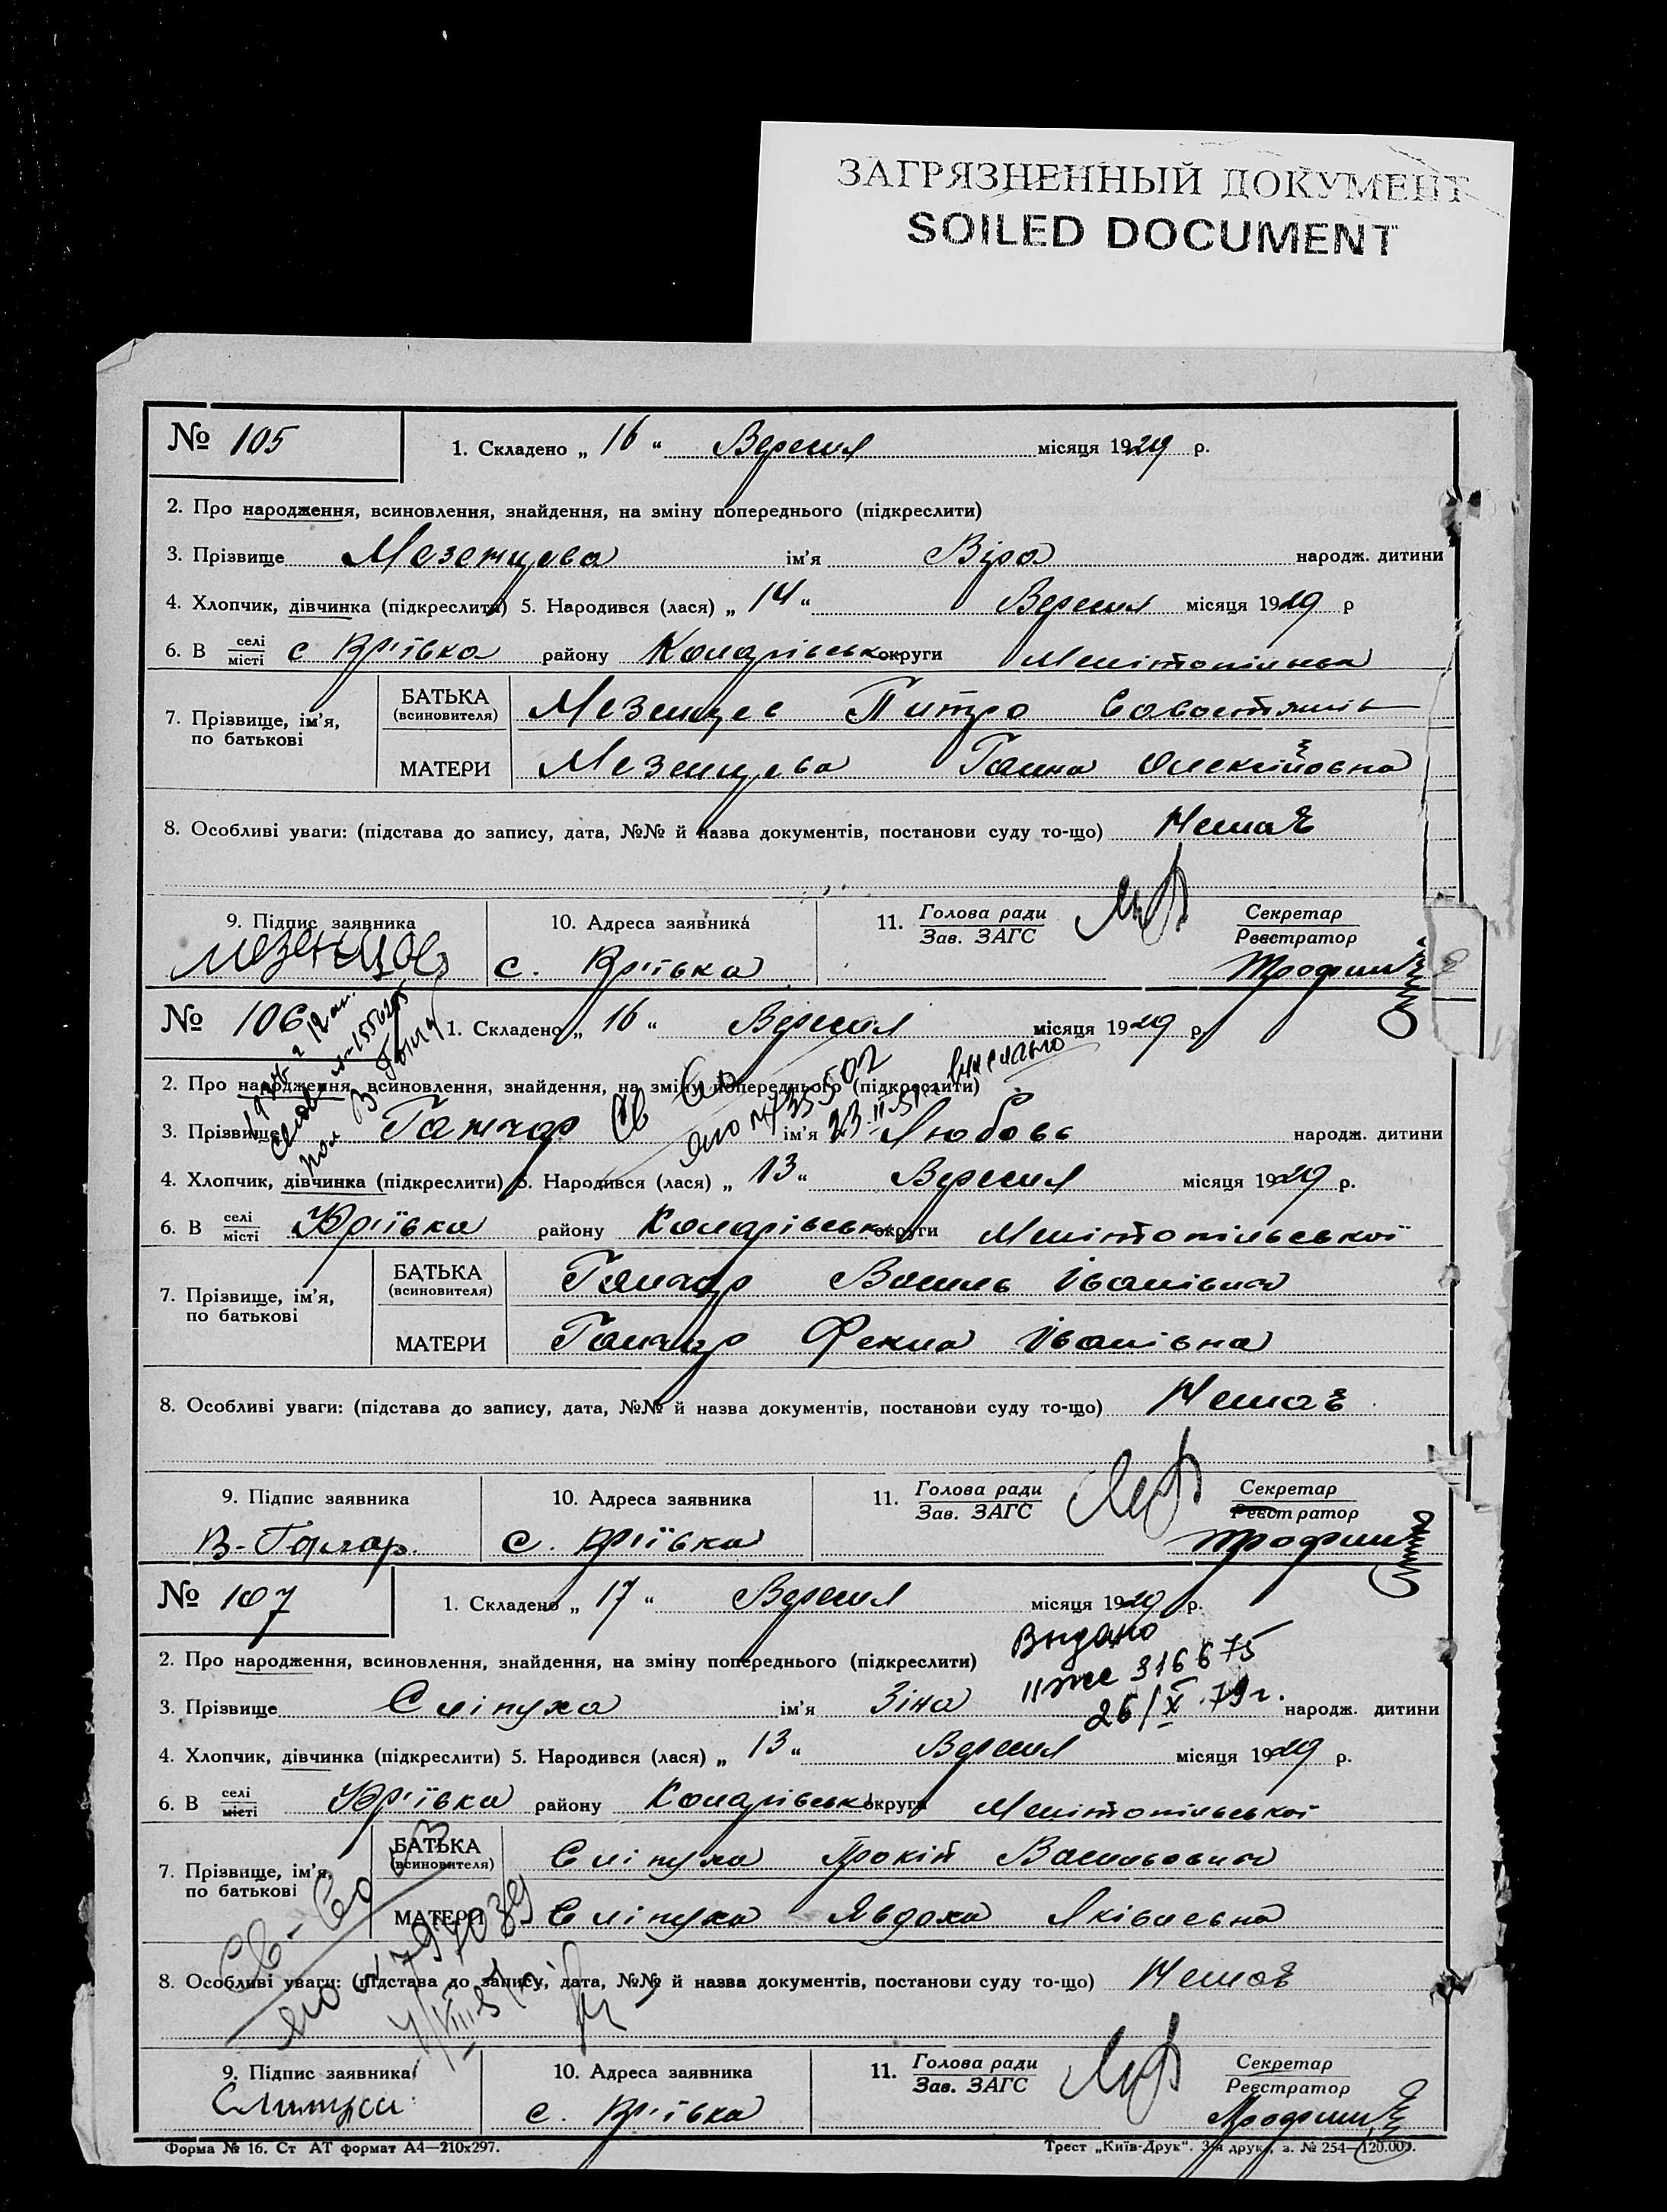 ЗАГРЯЗНЕННЫЙ ДОКУМЕНТ
SOILED DOCUMENT
№ 105 1. Складено „ 16 “ Вересня місяця 1929 р.
2. Про народження, всиновлення, знайдення, на зміну попереднього (підкреслити)
3. Прізвище Мезенцева ім’я Віра народж. дитини
4. Хлопчик, дівчинка (підкреслити) 5. Народився (лася) „ 14 “ Вересня місяця 1929 р
6. В селі місті с Юр'ївка району округи
7. Прізвище, ім’я, по батькові БАТЬКА (всиновителя) Мезенцев Питро
МАТЕРИ Мезенцева Ганна Олексіївна
8. Особливі уваги: (підстава до запису, дата, №№ й назва документів, постанови суду то-що) Немає
9. Підпис заявника 10. Адреса заявника 11. Голова ради Зав. ЗАГС Секретар Реєстратор
Мезенцев с. Юр'ївка
№ 106 1. Складено „ 16 “ Вересня місяця 1929 р.
2. Про народження, всиновлення, знайдення, на зміну попереднього (підкреслити)
3. Прізвище Ганчар ім’я Любовь народж. дитини
4. Хлопчик, дівчинка (підкреслити) 5. Народився (лася) „ 13 “ Вересня місяця 1929 р.
6. В селі місті Юр'ївка району округи Мелітопільської
7. Прізвище, ім’я, по батькові БАТЬКА (всиновителя) Ганчар Василь Іванович
МАТЕРИ Ганчар Фекла Іванівна
8. Особливі уваги: (підстава до запису, дата, №№ й назва документів, постанови суду то-що) Немає
9. Підпис заявника 10. Адреса заявника 11. Голова ради Зав. ЗАГС Секретар Реєстратор
В. Ганчар. с. Юр'ївка
№ 107 1. Складено „ 17 “ Вересня місяця 1929 р.
Выдано
2. Про народження, всиновлення, знайдення, на зміну попереднього (підкреслити)
316675
3. Прізвище Сліпуха ім’я Зіна народж. дитини
26/X 79г.
4. Хлопчик, дівчинка (підкреслити) 5. Народився (лася) „ 13 “ Вересня місяця 1929 р.
6. В селі місті Юр'ївка району округи Мелітопільської
7. Прізвище, ім’я, по батькові БАТЬКА (всиновителя) Сліпуха Прокіп Васильович
МАТЕРИ Сліпуха Явдоха Яківлевна
8. Особливі уваги: (підстава до запису, дата, №№ й назва документів, постанови суду то-що) Немає
9. Підпис заявника 10. Адреса заявника 11. Голова ради Зав. ЗАГС Секретар Реєстратор
с. Юр'ївка
Форма № 16. Ст АТ формат А4—210х297. Трест „Київ-Друк“. 3-я друк., з. № 254—120.000.